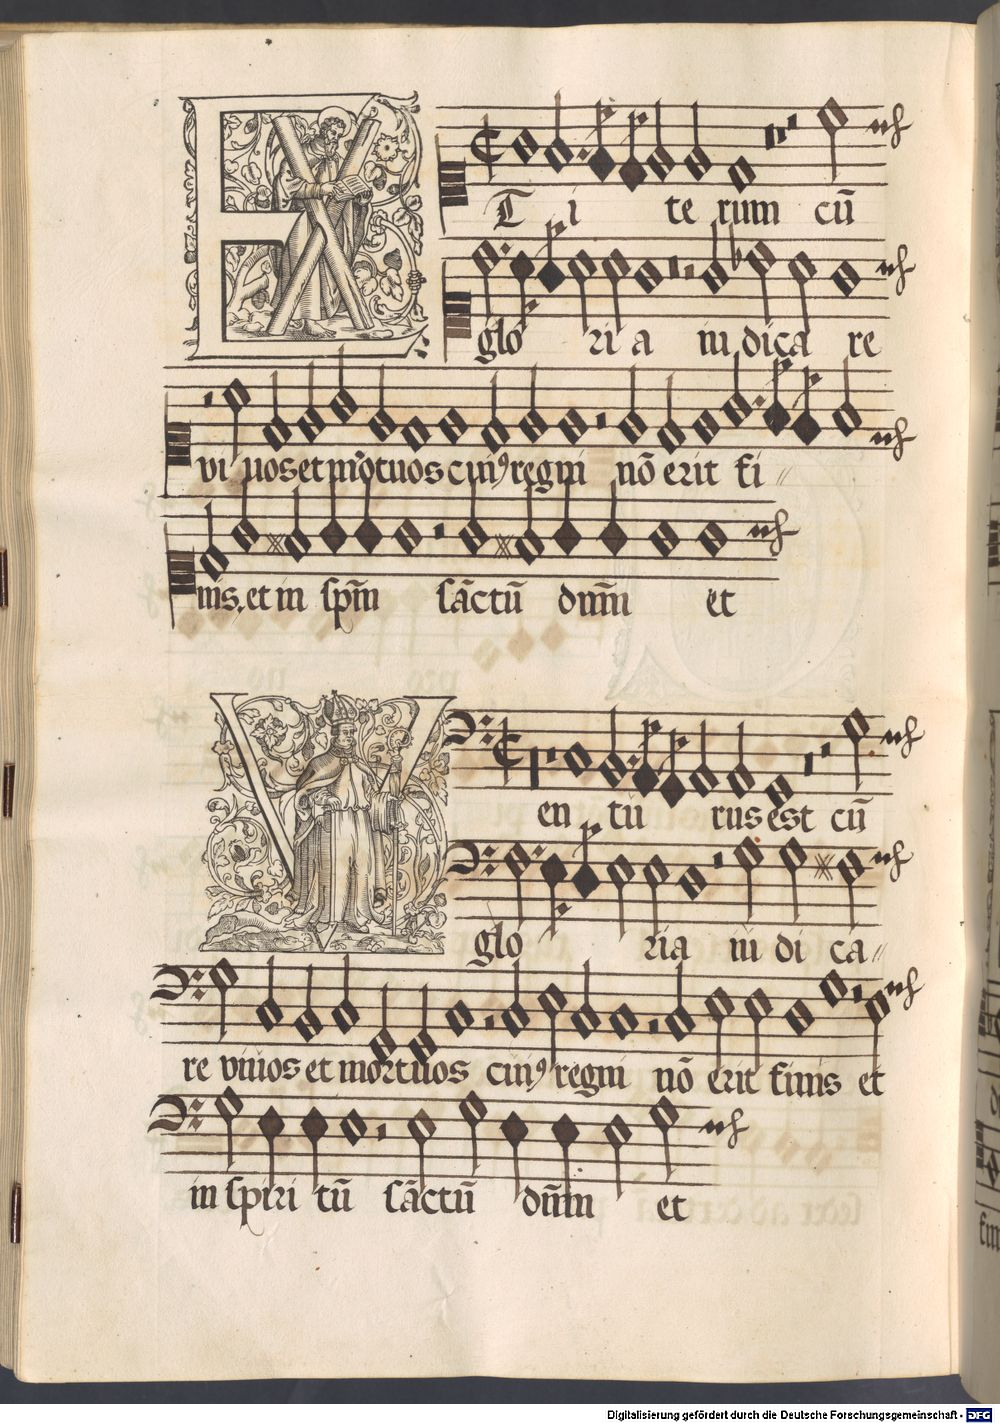 ET i te rum cū
glo ri a iu dica re
vi uos et mōtuos cuiꝰ regni nō erit fi〃
nis. et in spm̄ sāctū dnm̄ et
Ven tu rus est cū
glo ria iu di ca〃
re viuos et mortuos cuiꝰ regni nō erit finis et
in spiri tū sāctū dnm̄ et
Digitalisierung gefördert durch die Deutsche Forschungsgemeinschaft - DFG